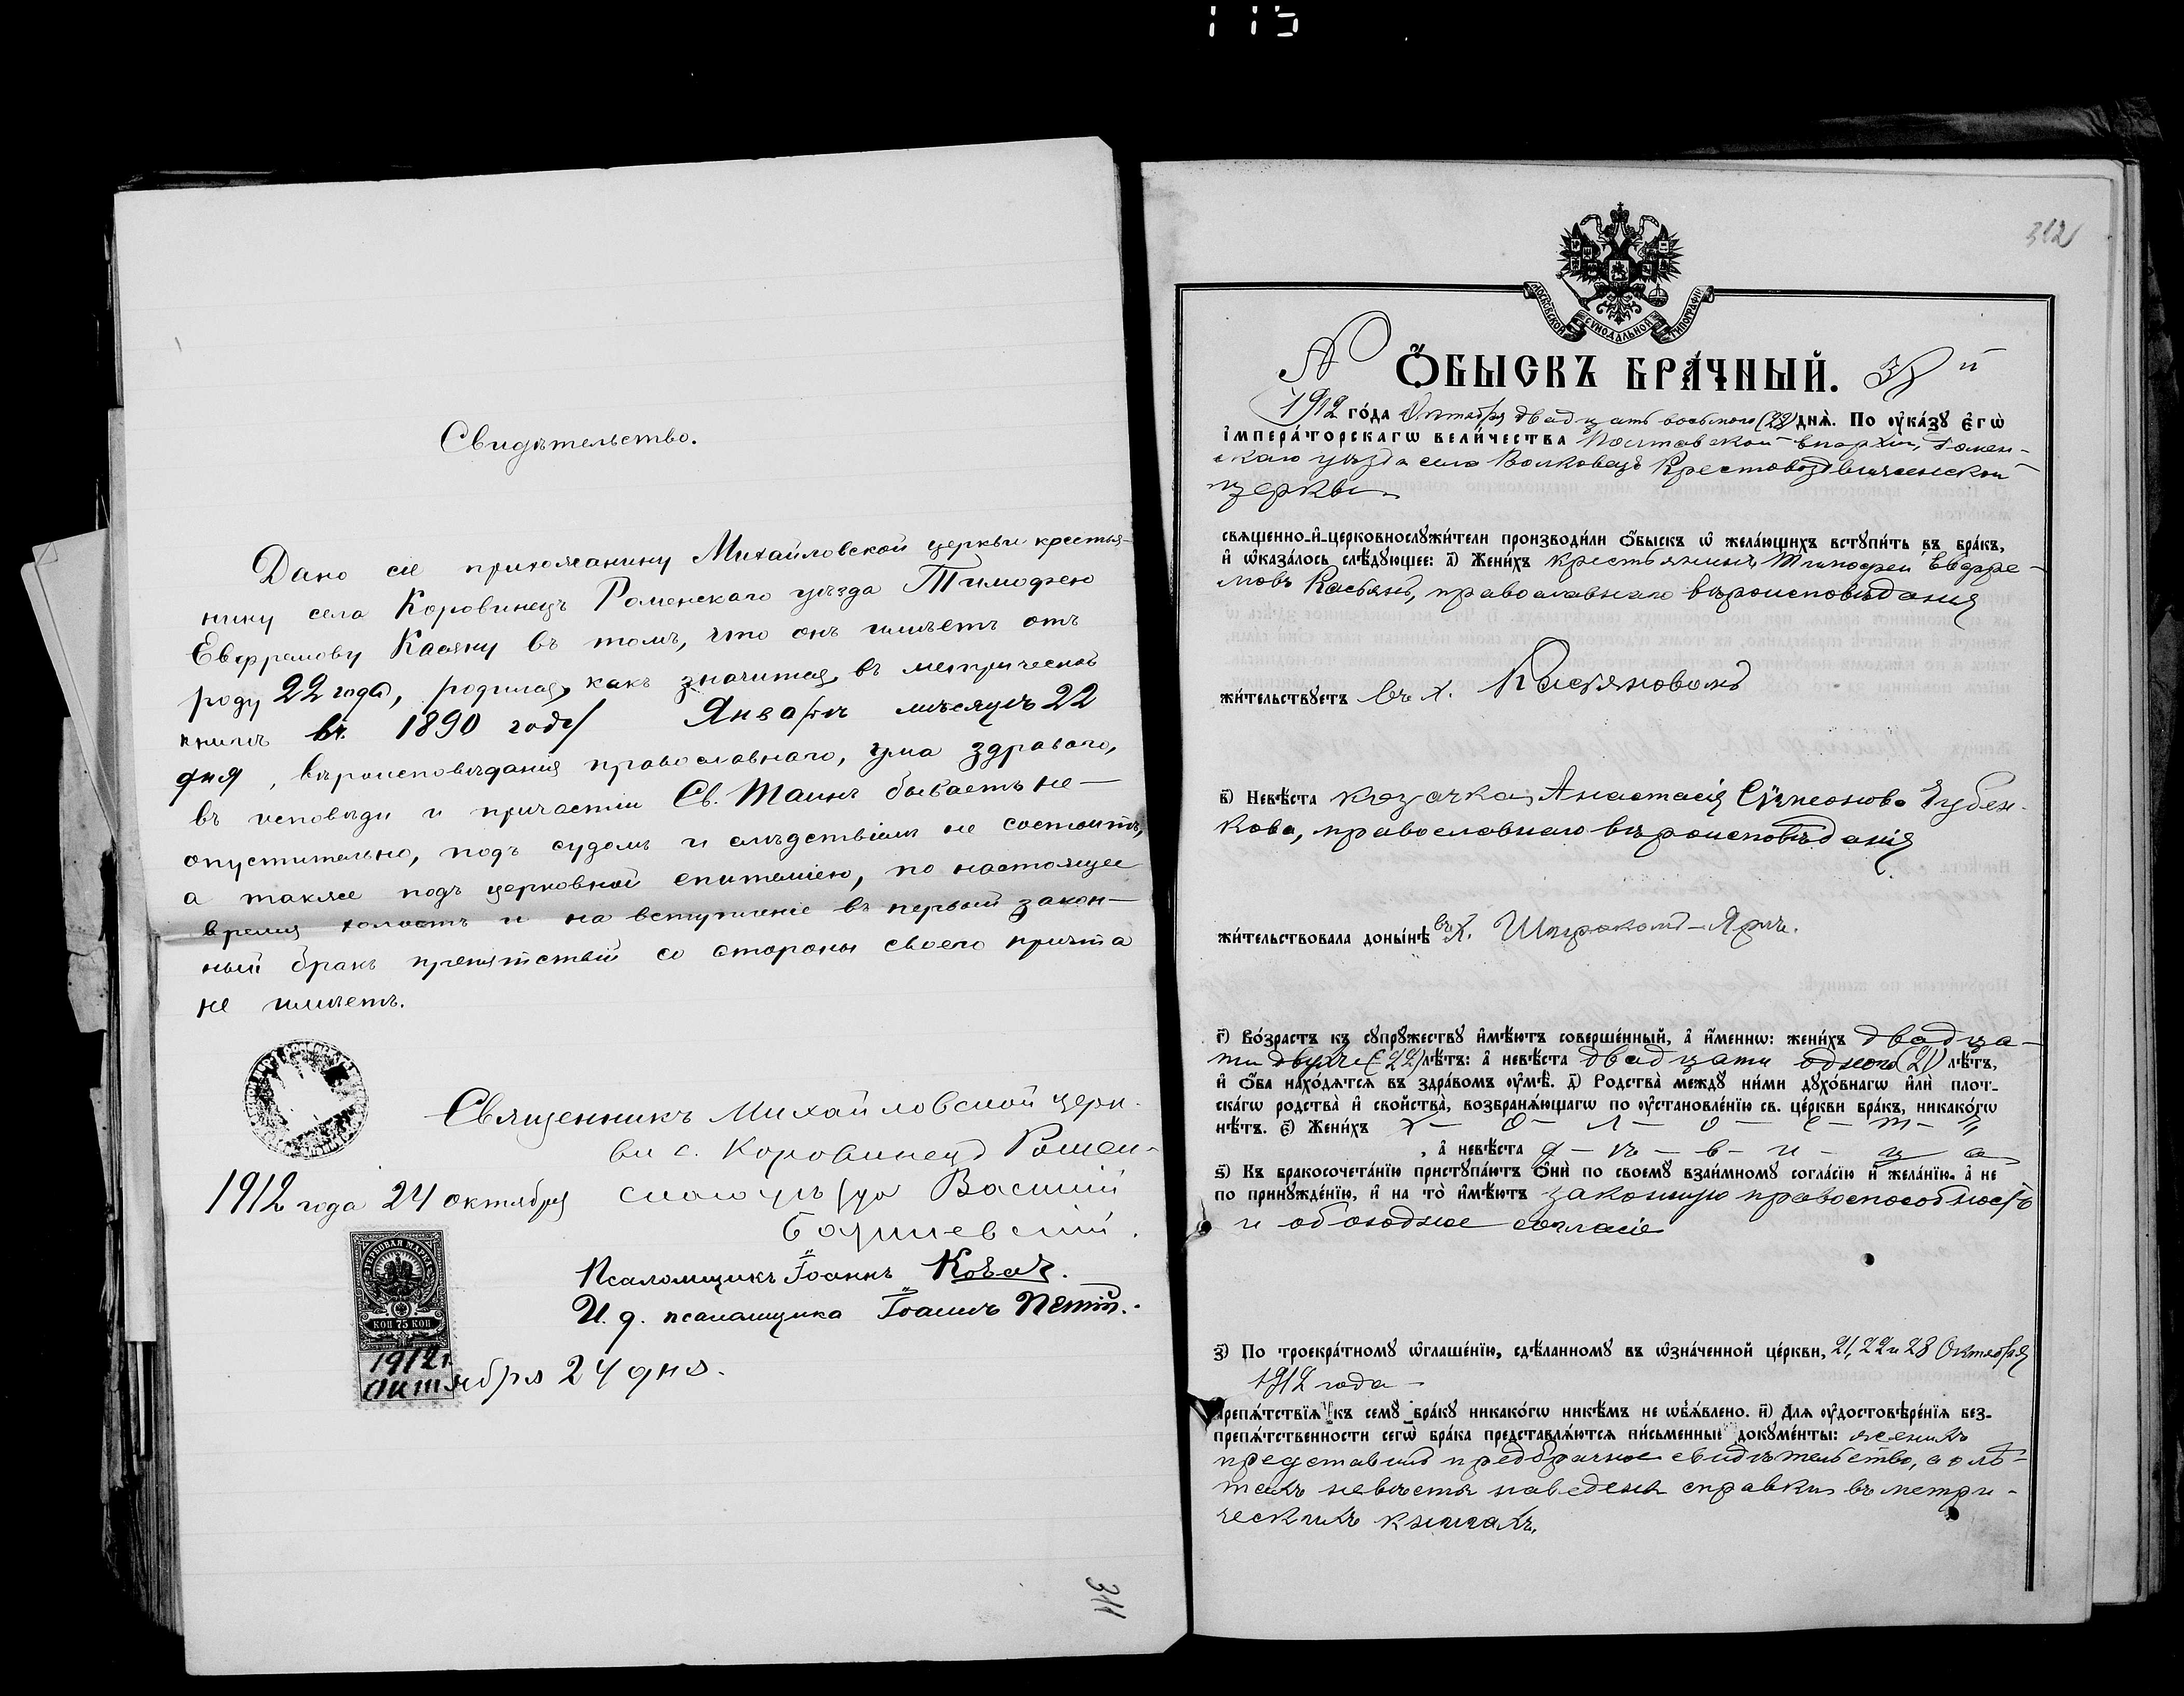 115
Свидѣтельство.
Дано сіе прихожанину Михайловской церкви крестья-
нину села Коровинецъ Роменскаго уѣзда Тимофею
Евфремову Касяну въ томъ, что онъ имѣетъ отъ
роду 22 года, родился, какъ значится въ метрической
книгѣ въ 1890 году Январѣ мѣсяцѣ 22
дня, вѣроисповѣданія православнаго, ума здраваго,
въ исповѣди и причастіи Св. Таинъ бываетъ не-
опустительно, подъ судомъ и слѣдствіемъ не состоитъ,
а также подъ церковной епитиміею, по настоящее
время холостъ и на вступленіе въ первый закон-
ный бракъ препятствій со стороны своего причта
не имѣетъ.
Священникъ Михайловской церк-
ви с. Коровинецъ Ромен-
1912 года 24 октября скаго уѣзда Василій
Псаломщикъ Іоаннъ
И. д. псаломщика Іоаннъ
ГЕРБОВАЯ МАРКА
КОП 75 КОП
1912 г.
октября 24 дня.
311
312
МОСКОВСКОЙ СѴНОДАЛЬНОЙ ТИПОГРАФІИ
№ Ѻ҆БЫСКЪ БРА́ЧНЫЙ. 38 й
1912 го́да Октября двадцать восьмого (28) днѧ̀. По ᲂу҆ка́зꙋ Є҆гѡ̀
І҆мпера́торскагѡ вели́чества Полтавской епархіи, Ромен-
скаго уѣзда села Волковецъ Крестовоздвиженской
церкви
свѧщенно-и҆-церковнослꙋжи́тели производи́ли Ѻ҆́быскъ ѡ҆ жела́ющихъ встꙋпи́ть въ бра́къ,
и҆ ѡ҆каза́лось слѣ́дꙋющее: а҃) Жени́хъ крестьянинъ Тимофей Евфре-
мовъ Касьянъ, православнаго вѣроисповѣданія
жи́тельствꙋетъ въ х. Касьяновомъ
в҃) Невѣ́ста козачка Анастасія Сѵмеонова Зубен-
кова, православнаго вѣроисповѣданія
жи́тельствовала доны́нѣ въ х. Широкомъ-Ярѣ.
г҃) Во́зрастъ къ сꙋпрꙋ́жествꙋ и҆мѣ́ютъ соверше́нный, а҆ и҆́меннѡ: жени́хъ двадца-
ти двухъ (22) лѣ́тъ: а҆ невѣ́ста двадцати одного (21) лѣ́тъ,
и҆ Ѻ҆́ба нахо́дѧтсѧ въ здра́вомъ ᲂу҆мѣ̀. д҃) Родства̀ междꙋ ни́ми дꙋхо́внагѡ и҆лѝ плот-
ска́гѡ родства̀ и҆ свойства̀, возбранѧ́ющагѡ по ᲂу҆становле́нїю св. це́ркви бра́къ, никако́гѡ
нѣ́тъ. є҃) Жени́хъ х-о-л-о-с-т-ъ
, а҆ невѣ́ста д-ѣ-в-и-ц-а
ѕ҃) Къ бракосочета́нїю пристꙋпа́ютъ Ѻ҆нѝ по своемꙋ̀ взаи́мномꙋ согла́сїю и҆ жела́нїю, а҆ не
по принꙋжде́нїю, и҆ на то̀ и҆мѣ́ютъ законную правоспособность
и обоюдное согласіе
з҃) По троекра́тномꙋ ѡ҆глаше́нїю, сдѣ́ланномꙋ въ ѡ҆зна́ченной це́ркви, 21, 22 и 28 Октября
1912 года
препѧ́тствїѧ къ семꙋ̀ бра́кꙋ никако́гѡ никѣ́мъ не ѡ҆б̾ѧ́влено. и҃) Длѧ ᲂу҆достовѣре́нїѧ без-
препѧ́тственности сегѡ̀ бра́ка представлѧ́ютсѧ пи́сьменные докꙋме́нты: женихъ
представилъ предбрачное свидѣтельство, о лѣ-
тахъ невѣсты наведены справки въ метри-
ческихъ книгахъ.